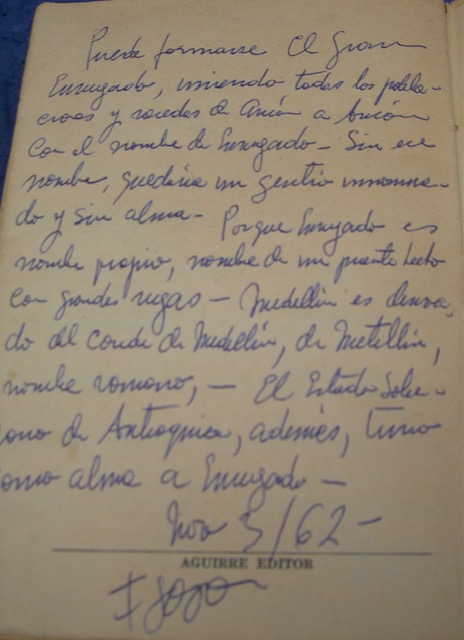 Puede formarse El Gran
Envigado, uniendo todas las pobla-
ciones y veredas de Ancón a Ancón
con el nombre de Envigado - Sin ese
nombre, quedaría un gentío innomina-
do y sin alma - Porque Envigado es
nombre propio, nombre de un puente hecho
con grandes vigas - Medellín es deriva
do del conde de Medellín, de Metellín,
nombre romano, - El Estado Sobe-
rano de Antioquia, además, tuvo
como alma a Envigado -
Nov 3/62 -
AGUIRRE EDITOR